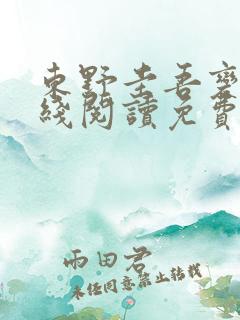 東野圭吾變
綫閱讀免費
雨田君
未經同意禁止轉載